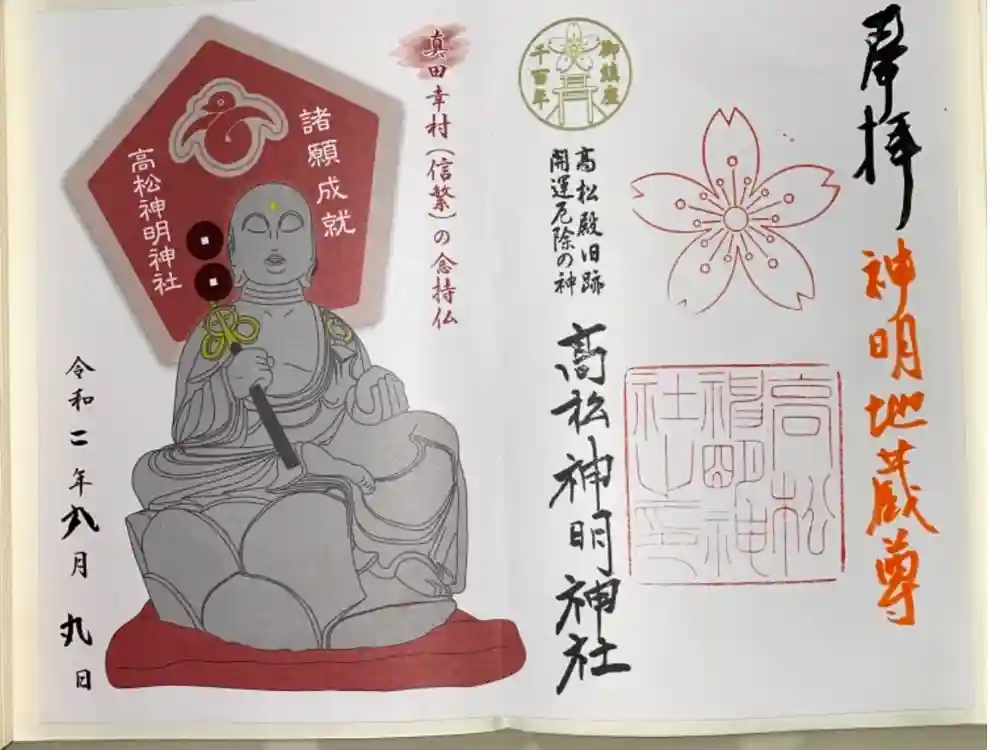 奉拝
神明地蔵尊
高松神明神社印
御鎮座
千百年
高松殿旧跡
開運厄除の神
高松神明神社
真田幸村（信繁）の念持仏
諸願成就
高松神明神社
令和二年八月九日